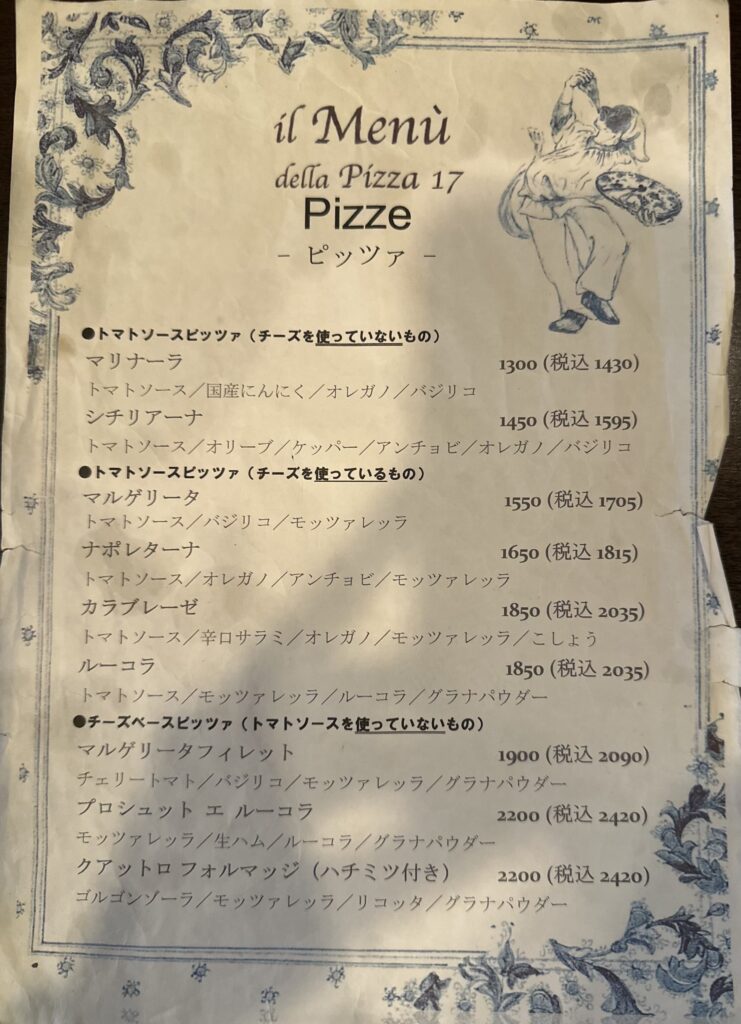 il Menù
della Pizza 17
Pizze
- ピッツァ -
●トマトソースピッツァ（チーズを使っていないもの）
マリナーラ 1300 (税込 1430)
トマトソース／国産にんにく／オレガノ／バジリコ
シチリアーナ 1450 (税込 1595)
トマトソース／オリーブ／ケッパー／アンチョビ／オレガノ／バジリコ
●トマトソースピッツァ（チーズを使っているもの）
マルゲリータ 1550 (税込 1705)
トマトソース／バジリコ／モッツァレッラ
ナポレターナ 1650 (税込 1815)
トマトソース／オレガノ／アンチョビ／モッツァレッラ
カラブレーゼ 1850 (税込 2035)
トマトソース／辛口サラミ／オレガノ／モッツァレッラ／こしょう
ルーコラ 1850 (税込 2035)
トマトソース／モッツァレッラ／ルーコラ／グラナパウダー
●チーズベースピッツァ（トマトソースを使っていないもの）
マルゲリータフィレット 1900 (税込 2090)
チェリートマト／バジリコ／モッツァレッラ／グラナパウダー
プロシュット エ ルーコラ 2200 (税込 2420)
モッツァレッラ／生ハム／ルーコラ／グラナパウダー
クアットロ フォルマッジ（ハチミツ付き） 2200 (税込 2420)
ゴルゴンゾーラ／モッツァレッラ／リコッタ／グラナパウダー